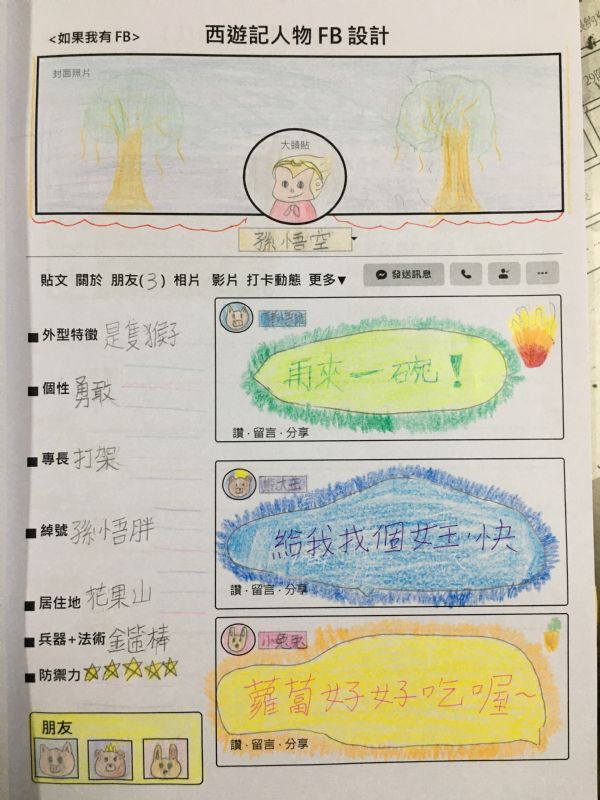 <如果我有FB>
西遊記人物FB設計
封面照片
大頭貼
孫悟空
貼文 關於 朋友(3) 相片 影片 打卡動態 更多▼
發送訊息
...
外型特徵 是隻猴子
個性 勇敢
專長 打架
綽號 孫悟胖
居住地 花果山
兵器+法術 金箍棒
防禦力 ☆☆☆☆☆
朋友
再來一碗!
讚·留言·分享
熊大王
給我找個女王,快
讚·留言·分享
小兔兔
蘿蔔好好吃喔~
讚·留言·分享